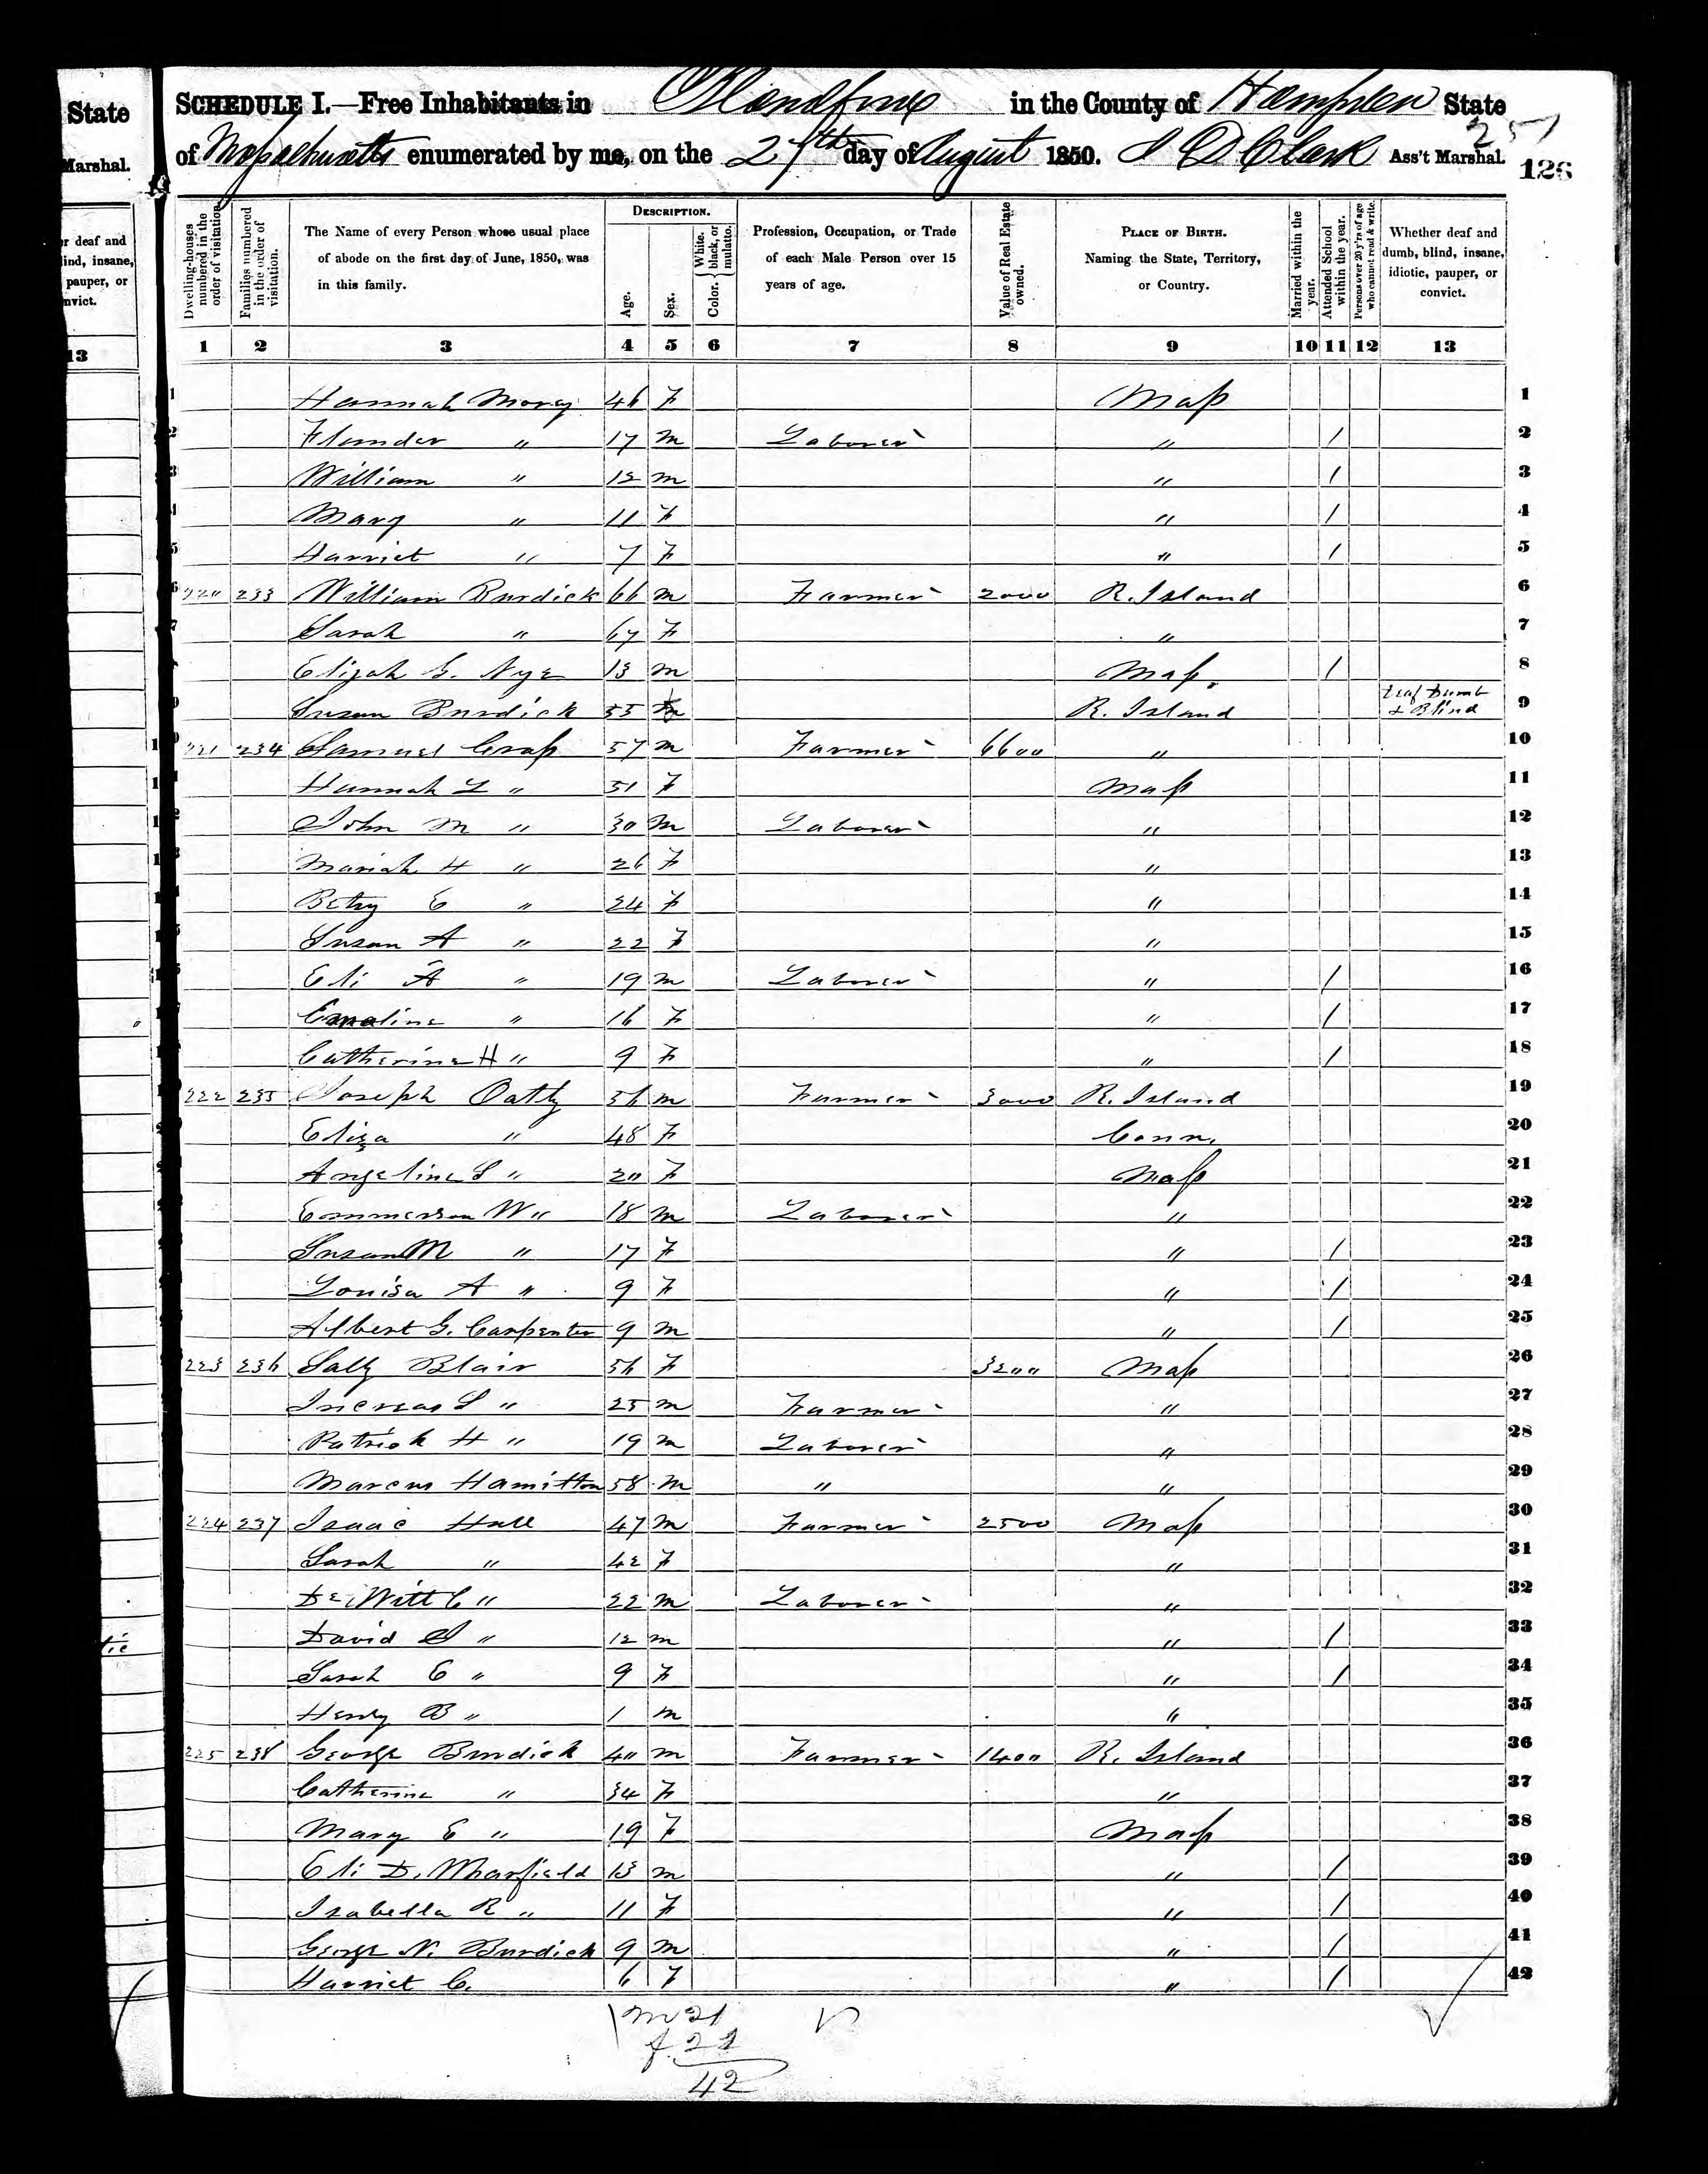 State
Marshal.
SCHEDULE I.—Free Inhabitants in Blandford in the County of Hampden State
of Massachusetts enumerated by me, on the 27th day of August 1850. Clark Ass't Marshal.
257
126
r deaf and
lind, insane,
pauper, or
nvict.
13
Dwelling-houses numbered in the order of visitation.
Families numbered in the order of visitation.
The Name of every Person whose usual place of abode on the first day of June, 1850, was in this family.
DESCRIPTION.
Age.
Sex.
Color. { White, black, or mulatto.
Profession, Occupation, or Trade of each Male Person over 15 years of age.
Value of Real Estate owned.
PLACE OF BIRTH. Naming the State, Territory, or Country.
Married within the year.
Attended School within the year.
Persons over 20 y'rs of age who cannot read & write.
Whether deaf and dumb, blind, insane, idiotic, pauper, or convict.
1 2 3 4 5 6 7 8 9 10 11 12 13
1 Hannah 46 F Mass 1
2 " 17 M Laborer " / 2
3 William " 12 M " / 3
4 Mary " 11 F " / 4
5 Harriet " 7 F " / 5
220 233 William Burdick 66 M Farmer 2000 R. Island 6
Sarah " 67 F " 7
Elijah G. Nye 13 M Mass. / 8
Susan Burdick 55 R. Island Deaf Dumb & Blind 9
221 234 Samuel Cross 57 M Farmer 6600 " 10
Hannah L " 51 F Mass 11
John M " 30 M Laborer " 12
Mariah H " 26 F " 13
Betsy E " 24 F " 14
Susan A " 22 F " 15
Eli A " 19 M Laborer " / 16
Emeline " 16 F " / 17
Catherine H " 9 F " / 18
222 235 Joseph Oatly 56 M Farmer 3000 R. Island 19
Eliza " 48 F Conn. 20
Angeline S " 20 F Mass 21
Emmerson W " 18 M Laborer " 22
Susan M " 17 F " / 23
Louisa A " 9 F " / 24
Albert G. Carpenter 9 M " / 25
223 236 Sally Blair 56 F 3200 Mass 26
Increas S " 25 M Farmer " 27
Patrick H " 19 M Laborer " 28
Marcus Hamilton 58 M " " 29
224 237 Isaac Hall 47 M Farmer 2500 Mass 30
Sarah " 42 F " 31
De Witt C " 22 M Laborer " 32
David " 12 M " / 33
Sarah E " 9 F " / 34
Henry B " 1 M " 35
225 238 George Burdick 40 M Farmer 1400 R. Island 36
Catherine " 34 F " 37
Mary E " 19 F Mass 38
Eli D. 13 M " / 39
Isabella R " 11 F " / 40
George N. Burdick 9 M " / 41
Harriet C. 6 F " / 42
m 21
f. 21
42